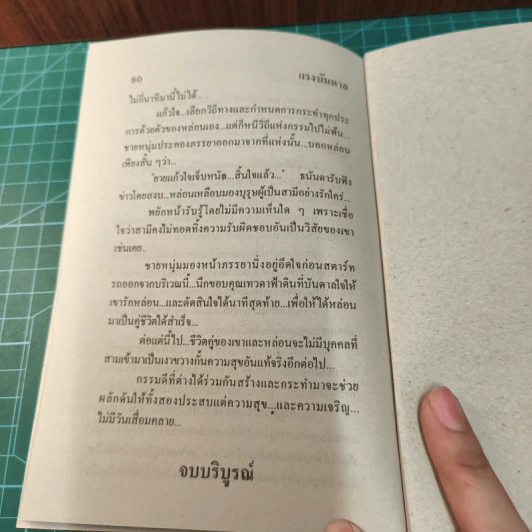 80 แรงบันดาล
ไม่ถึนาทีมานี้ไม่ได้...
แก้วใจ...เลือกวิถีทางและกำหนดการกระทำทุกประ
การด้วยตัวของหล่อนเอง...แต่ก็หนีวิถีแห่งกรรมไปไม่พ้น...
ชายหนุ่มประคองภรรยาออกมาจากที่แห่งนั้น...บอกหล่อน
เพียงสั้น ๆว่า...
"ยายแก้วใจเจ็บหนัก...สิ้นใจแล้ว..." ธนันดารับฟัง
ข่าวโดยสงบ...หล่อนเหลือบมองบุรุษผู้เป็นสามีอย่างรักใคร่...
พยักหน้ารับรู้โดยไม่มีความเห็นใด ๆ เพราะเชื่อ
ใจว่าสามีคงไม่ทอดทิ้งความรับผิดชอบอันเป็นวิสัยของเขา
เช่นเคย..
ชายหนุ่มมองหน้าภรรยานิ่งอยู่อึดใจก่อนสตาร์ท
รถออกจากบริเวณนี้...นึกขอบคุณเทวดาฟ้าดินที่บันดาลใจให้
เขารักหล่อน...และตัดสินใจได้นาทีสุดท้าย...เพื่อให้ได้หล่อน
มาเป็นคู่ชีวิตได้สำเร็จ...
ต่อแต่นี้ไป...ชีวิตคู่ของเขาและหล่อนจะไม่มีบุคคลที่
สามเข้ามาเป็นเงาขวางกั้นความสุขอันแท้จริงอีกต่อไป...
กรรมดีที่ต่างได้ร่วมกันสร้างและกระทำมาจะช่วย
ผลักดันให้ทั้งสองประสบแต่ความสุข...และความเจริญ...
ไม่มีวันเสื่อมคลาย...
จบบริบูรณ์